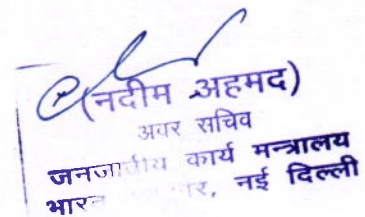 (नदीम अहमद)
अवर सचिव
जनजातीय कार्य मन्त्रालय
नई दिल्ली